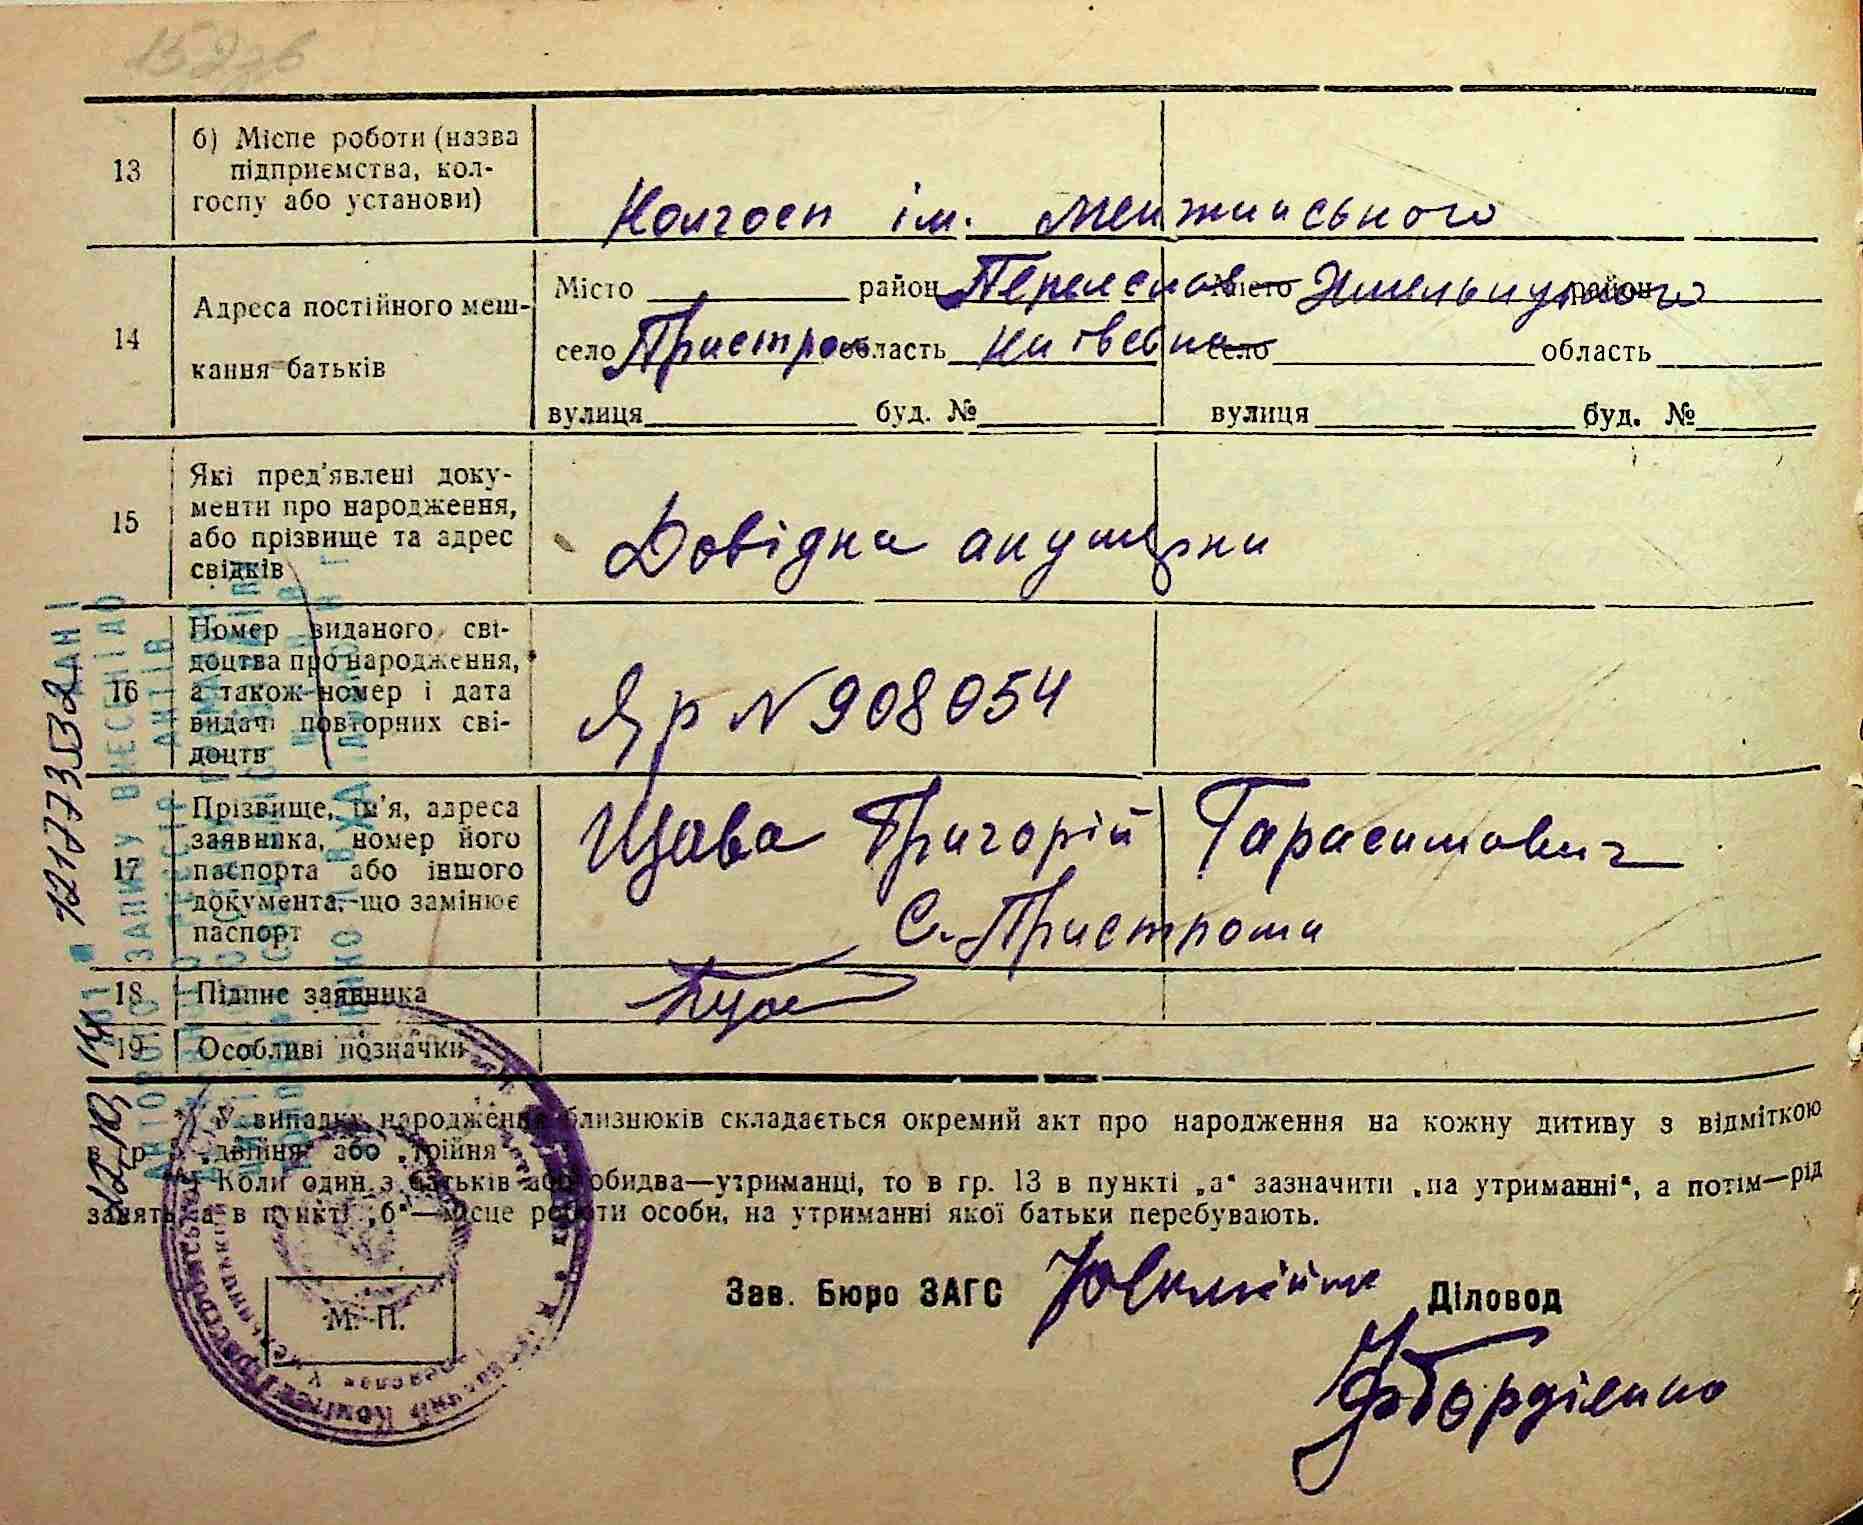 13
б) Місце роботи (назва
підприємства, кол-
госпу або установи)
Колгосп ім. Менжинського
14
Адреса постійного меш-
кання батьків
Місто район Переяслав Місто Хмельницького район
село Пристроми область Київська село область
вулиця буд. № вулиця буд. №
15
Які пред'явлені доку-
менти про народження,
або прізвище та адрес
свідків
Довідка акушерки
16
Номер виданого сві-
доцтва про народження,
а також номер і дата
видачі повторних сві-
доцтв
Яр N 908054
17
Прізвище, ім'я, адреса
заявника, номер його
паспорта або іншого
документа, що замінює
паспорт
Щава Григорій Гарасимович
С. Пристроми
18
Підпис заявника
19
Особливі позначки
У випадку народження близнюків складається окремий акт про народження на кожну дитину з відміткою
в гр. 5 „двійня" або „трійня"
Коли один з батьків або обидва—утриманці, то в гр. 13 в пункті „а" зазначити „на утриманні", а потім—рід
занять, а в пункті „б"—місце роботи особи, на утриманні якої батьки перебувають.
Зав. Бюро ЗАГС Діловод
М. П.